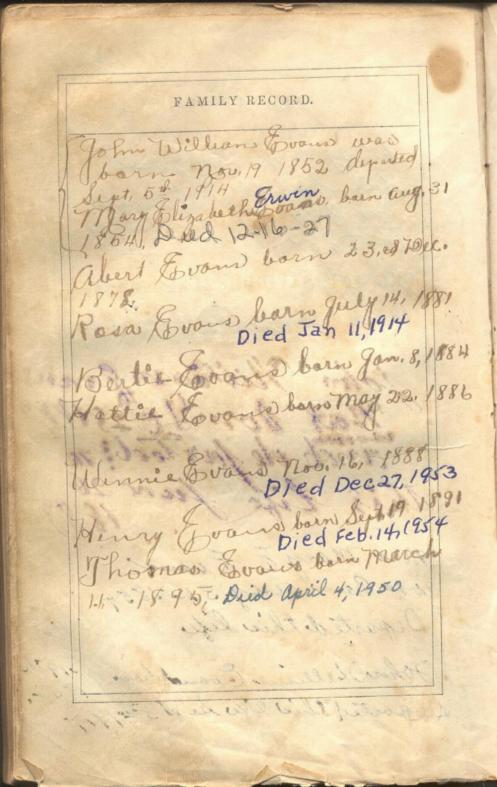 FAMILY RECORD.
John William Evans was
born Nov. 19 1852 deparsed
Sept, 5th 1914 Erwin
Mary Elizabeth Evans born Aug. 31
1854, Died 12-16-27
Abert Evans born 23, Dec.
1878.
Rosa Evans born July 14, 1881
Died Jan 11, 1914
Bertie Evans born Jan. 8, 1884
Hattie Evans born May 22. 1886
Winnie Evans Nov. 16, 1888
Died Dec 27, 1953
Henry Evans born Sept 19 1891
Died Feb. 14, 1954
Thomas Evans born March
11. 1895, Died April 4, 1950